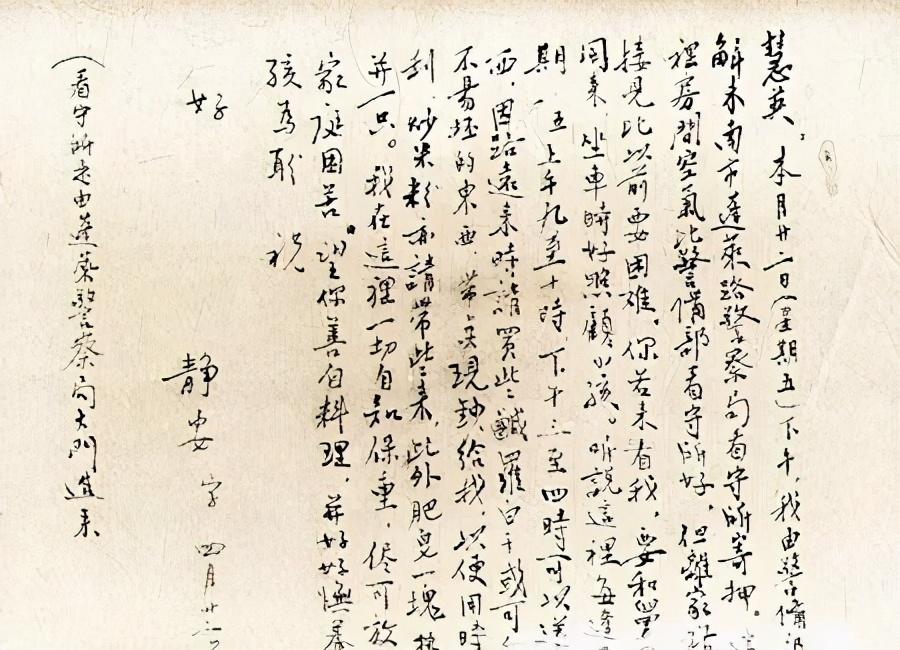 慧英：本月廿二日（星期五）下午，我由警備
解來南市蓬萊路警察局看守所寄押。這
裡房間空氣比警備部看守所好，但離家
接見比以前要困難。你若來看我，要和
同來，坐車時好照顧小孩。听說這裡每逢
期 五上午九至十時，下午三至四時可以送
西，因路遠來時請買些鹹羅白干或可
不易坯的東西，帶 現鈔給我，以便用時
到，炒米粉亦請帶些來，此外肥皂一塊
并一只。我在這裡一切自知保重，儘可放
家庭困苦，望你善自料理，并好好撫養
孩為盼 祝
好
靜安 字 四月廿
（看守所走由蓬萊警察局大門進來